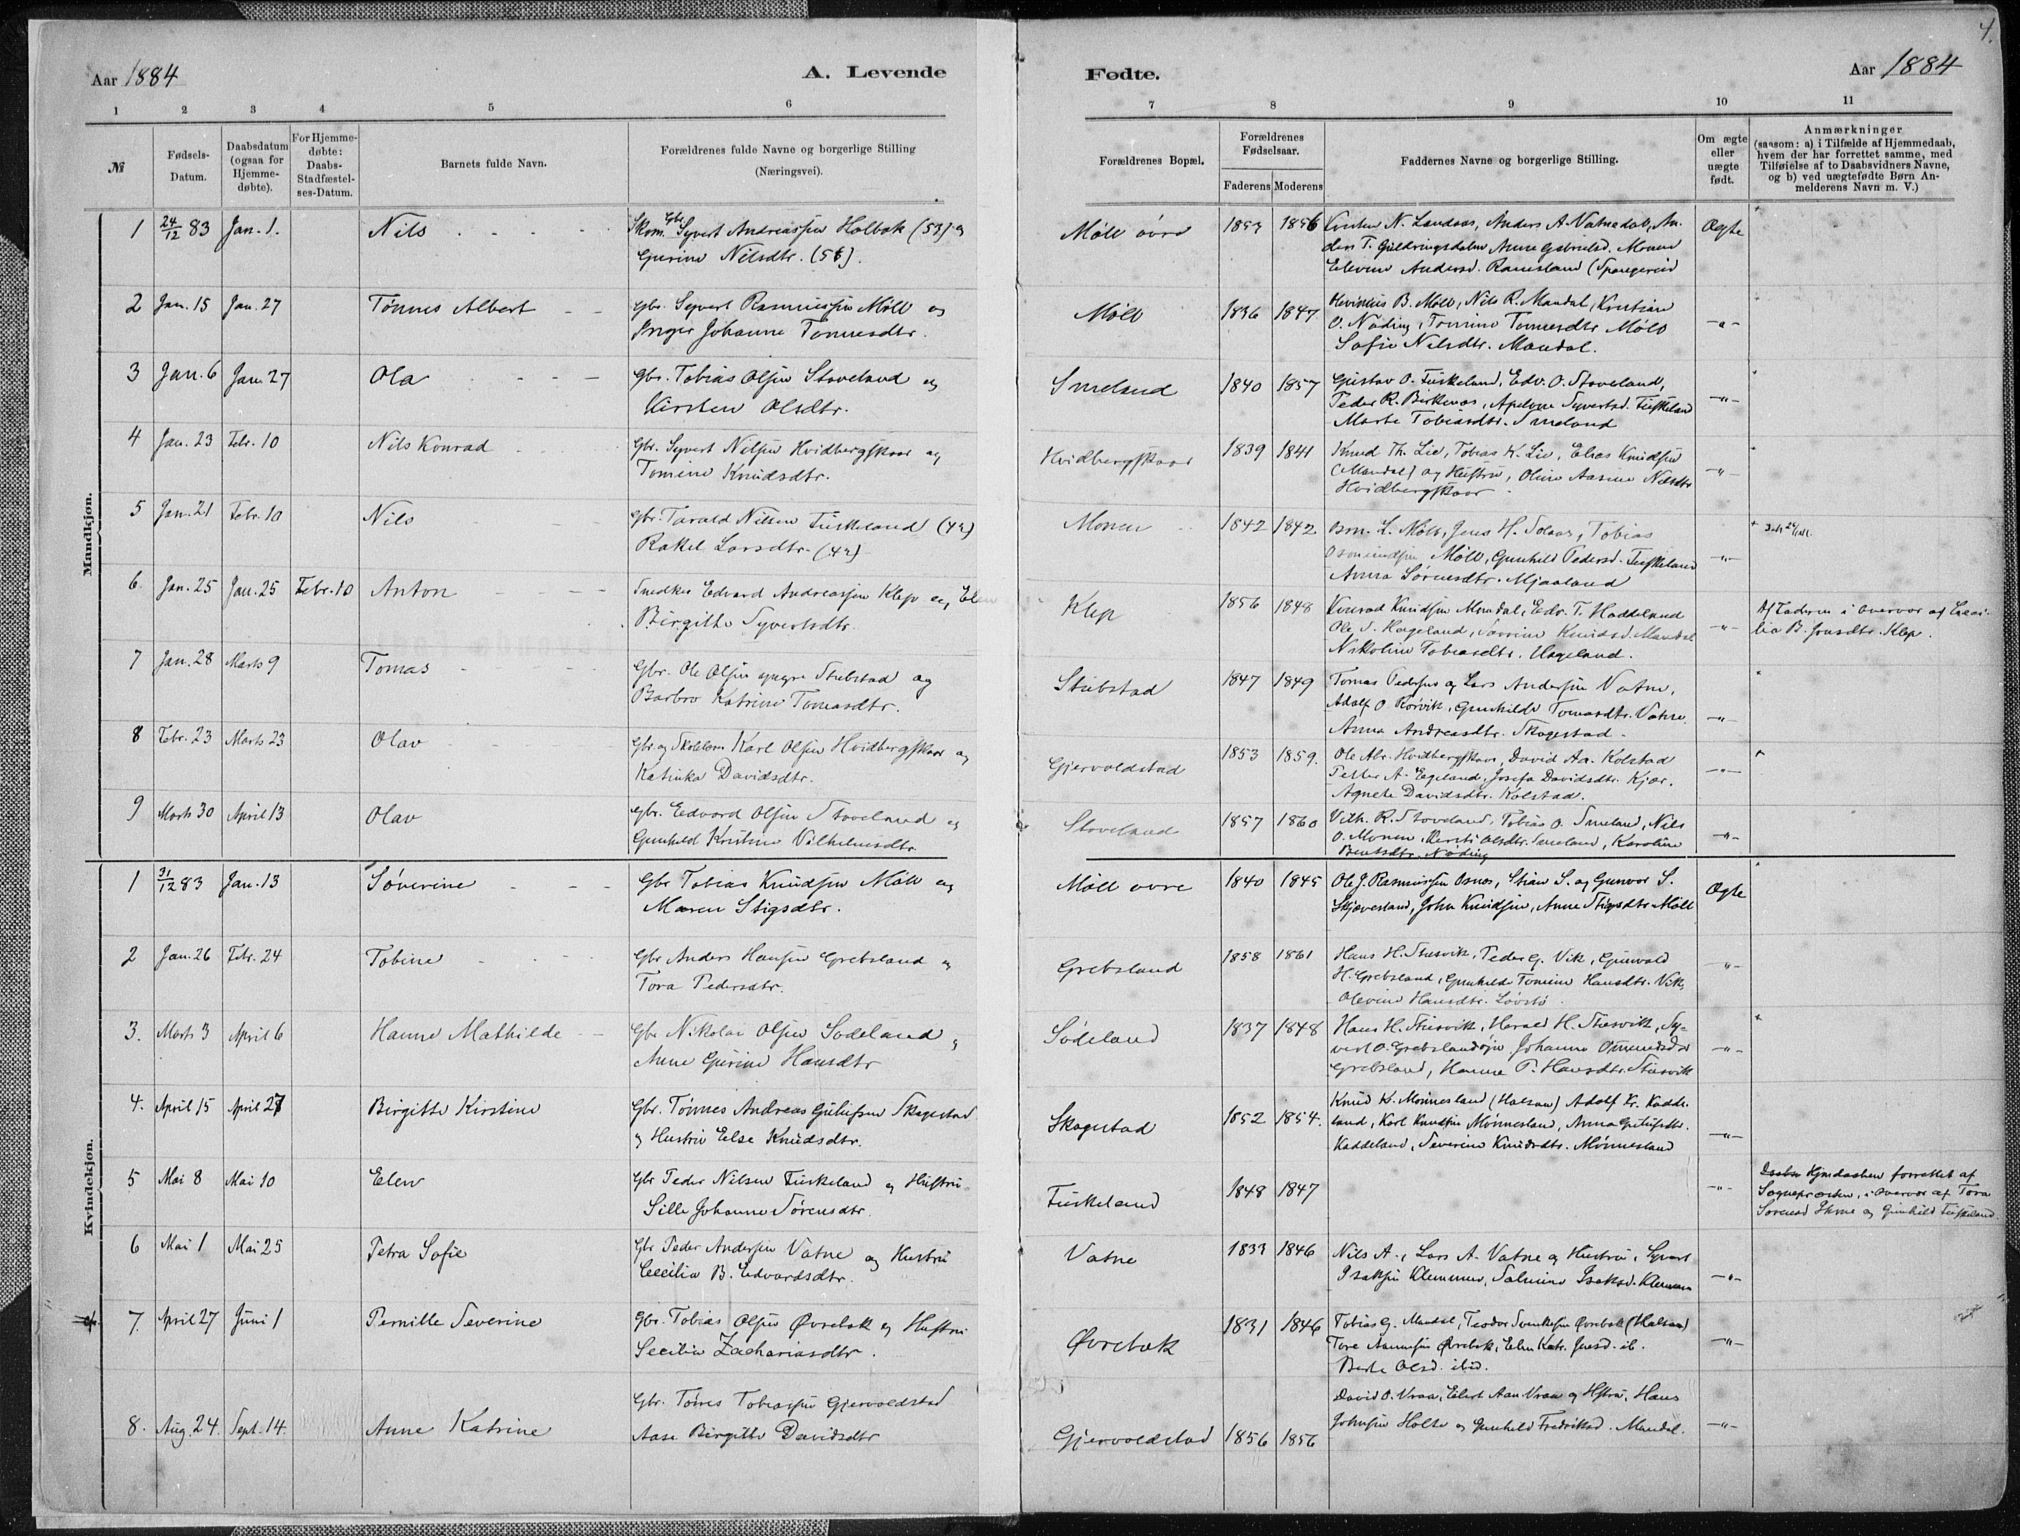 4.
Aar 1884 A. Levende Fødte. Aar 1884
1 2 3 4 5 6 7 8 9 10 11
№ Fødsels-Datum. Daabsdatum (ogsaa for Hjemmedøbte). For Hjemmedøbte: Daabs-Stadfæstelses-Datum. Barnets fulde Navn. Forældrenes fulde Navne og borgerlige Stilling (Næringsvei). Forældrenes Bopæl. Forældrenes Fødselsaar. Faderens Moderens Faddernes Navne og borgerlige Stilling. Om ægte eller uægte født. Anmærkninger (saasom: a) i Tilfælde af Hjemmedaab, hvem der har forrettet samme, med Tilføielse af to Daabsvidners Navne, og b) ved uægtefødte Børn Anmelderens Navn m. V.)
Mandkjøn.
1 24/12 83 Jan. 1. Nils Skom. Gbr. Syvert Andreassen Holbæk (53) og Møll øvre 1853 1856 Kirsten N. Landaas, Anders A. Vatnedal, An- Ægte
Gurine Nilsdtr. (56). ders T. Guldringsdalen Anne Gabrielsd. Monen
Elevine Andersd. Ramsland (Spangereid
2 Jan. 15 Jan. 27 Tønnes Albert Gbr. Syvert Rasmussen Møll og Møll 1836 1847 B. Møll, Nils R. Mandal, Kristian -"-
Inger Johanne Tønnesdtr. O. Nøding, Tomine Tønnesdtr Møll
Sofie Nilsdtr. Mandal.
3 Jan. 6 Jan. 27 Ola Gbr. Tobias Olsen Stoveland og Smeland 1840 1857 Gustav O. Fuskeland, Edv. O. Stoveland, -"-
Kirsten Olsdtr. Peder R. Birkenes, Apelone Syvertsd. Fuskeland
Marte Tobiasdtr. Smeland
4 Jan. 23 Febr. 10 Nils Konrad Gbr. Syvert Nilsen Hvidbergskaar og Hvidbergskaar 1839 1841 Knud Th. Lie, Tobias K. Lie, Elias Knudsen -"-
Tomine Knudsdtr. (Mandal) og Hustru, Oline Aasine Nilsdtr
Hvidbergskaar
5 Jan. 21 Febr. 10 Nils Gbr. Tarald Nilsen Fuskeland (42) Monen 1842 1842 Osm. L. Møll, Jens H. Solaas, Tobias -"-
Rakel Larsdtr. (42) Osmundsen Møll, Gunhild Pedersd. Fuskeland
Anna Sørensdtr. Mjaaland
6. Jan. 25 Jan. 25 Febr. 10 Anton Snedker Edvard Andreassen Klep og Elen Klep 1856 1848 Konrad Knudsen Mandal, Edv. T. Haddeland -"- Af Faderen i Overvær af Cæci-
Birgitte Syvertsdtr. Ole S. Hageland, Severine Knudsd. Mandal lia B. Jensdtr. Klep.
Nikoline Tobiasdtr. Hageland.
7 Jan. 28 Marts 9 Tomas Gbr. Ole Olsen yngre Stubstad og Stubstad 1847 1849 Tomas Pedersen og Lars Andersen Vatne, -"-
Barbro Katrine Tomasdtr. Adolf O. Rørvik, Gunhilde Tomasdtr. Vatne
Anna Andreasdtr. Skogestad.
8 Febr. 23 Marts 23 Olav Gbr og Skolelærer Karl Olsen Hvidbergskaar og Gjervoldstad 1853 1859. Ole Abr. Hvidbergskaar, David Aa. Kolstad -"-
Katinka Davidsdtr. Petter A. Egeland, Josefa Davidsdtr. Kjær.
Agnete Davidsdtr. Kolstad.
9 Marts 30 April 13 Olav Gbr. Edvard Olsen Stoveland og Stoveland 1857 1860 Vilh. R. Stoveland, Tobias O. Smeland, Nils -"-
Gunhild Kristine Vilhelmsdtr. O. Monen, Kirsti Olsdtr. Smeland, Karoline
Berntsdtr. Nøding
Kvindekjøn.
1 31/12 83 Jan. 13 Søverine Gbr Tobias Knudsen Møll og Møll øvre 1840 1845 Ole J. Rasmussen Osnes, Stian S. og Gunvor S. Ægte
Maren Stigsdtr. Skjævesland, John Knudsen, Anne Stigsdtr Møll
2 Jan. 26 Febr. 24 Tobine Gbr Anders Hansen Grebsland og Grebsland 1858 1861 Hans H. Stusvik, Peder G. Vik, Gunvald -"-
Tora Pedersdtr. H. Grebsland, Gunhilde Tomine Hansdtr. Vik,
Olevine Hansdtr. Løvstø.
3. Marts 3 April 6 Hanne Mathilde Gbr Nikolai Olsen Sødeland og Sødeland 1837 1848 Hans H. Stusvik, Harald H. Stusvik, Sy- -"-
Anne Gurine Hansdtr vert O. Grebslandsøen Johanne Omundsdtr
Grebsland, Hanne P. Hansdtr. Stusvik
4. April 15 April 27 Birgitte Kirstine Gbr. Tønnes Andreas Gulufsen Skogestad Skogestad 1852 1854. Knud K. Mønnesland (Halsaa) Adolf Kr. Kadde- -"-
og Hustru Else Knudsdtr. land, Karl Knudsen Mønnesland, Anna Gulufsdtr.
Kaddeland, Severine Knudsdtr. Mønnesland
5 Mai 8 Mai 10 Elen Gbr Peder Nilsen Fuskeland og Hustru Fuskeland 1848 1847 -"- Daaben Hjmdaaben forrettet af
Sille Johanne Sørensdtr. Sognepræsten, i Overvær af Tora
Sørensd Skone og Gunhild Fuskeland.
6 Mai 1 Mai 25 Petra Sofie Gbr Peder Andersen Vatne og Hustru Vatne 1833 1846 Nils A., Lars A. Vatne og Hustru, Syvert -"-
Cecilia B. Edvardsdtr. Isaksen Klemmen, Salmine Isaksd. Klemmen
7. April 27 Juni 1 Pernille Severine Gbr. Tobias Olsen Øvrebøk og Hustru Øvrebøk 1831 1846 Tobias G. Mandal, Teodor Øvrebøk (Halsaa) -"-
Secilia Zachariasdtr. Tore Aanensen Øvrebøk, Elen Katr. Jensd. ib.
Berte Olsd. ibid.
8. Aug. 24. Sept. 14. Anne Katrine Gbr. Tønnes Tobiassen Gjervoldstad Gjervoldstad 1856 1856 David O. Vraa, Elert Aan. Vraa og Hstru, Hans -"-
Aase Birgitte Davidsdtr Johnsen Holte og Gunhild Fredriksd. Mandal.